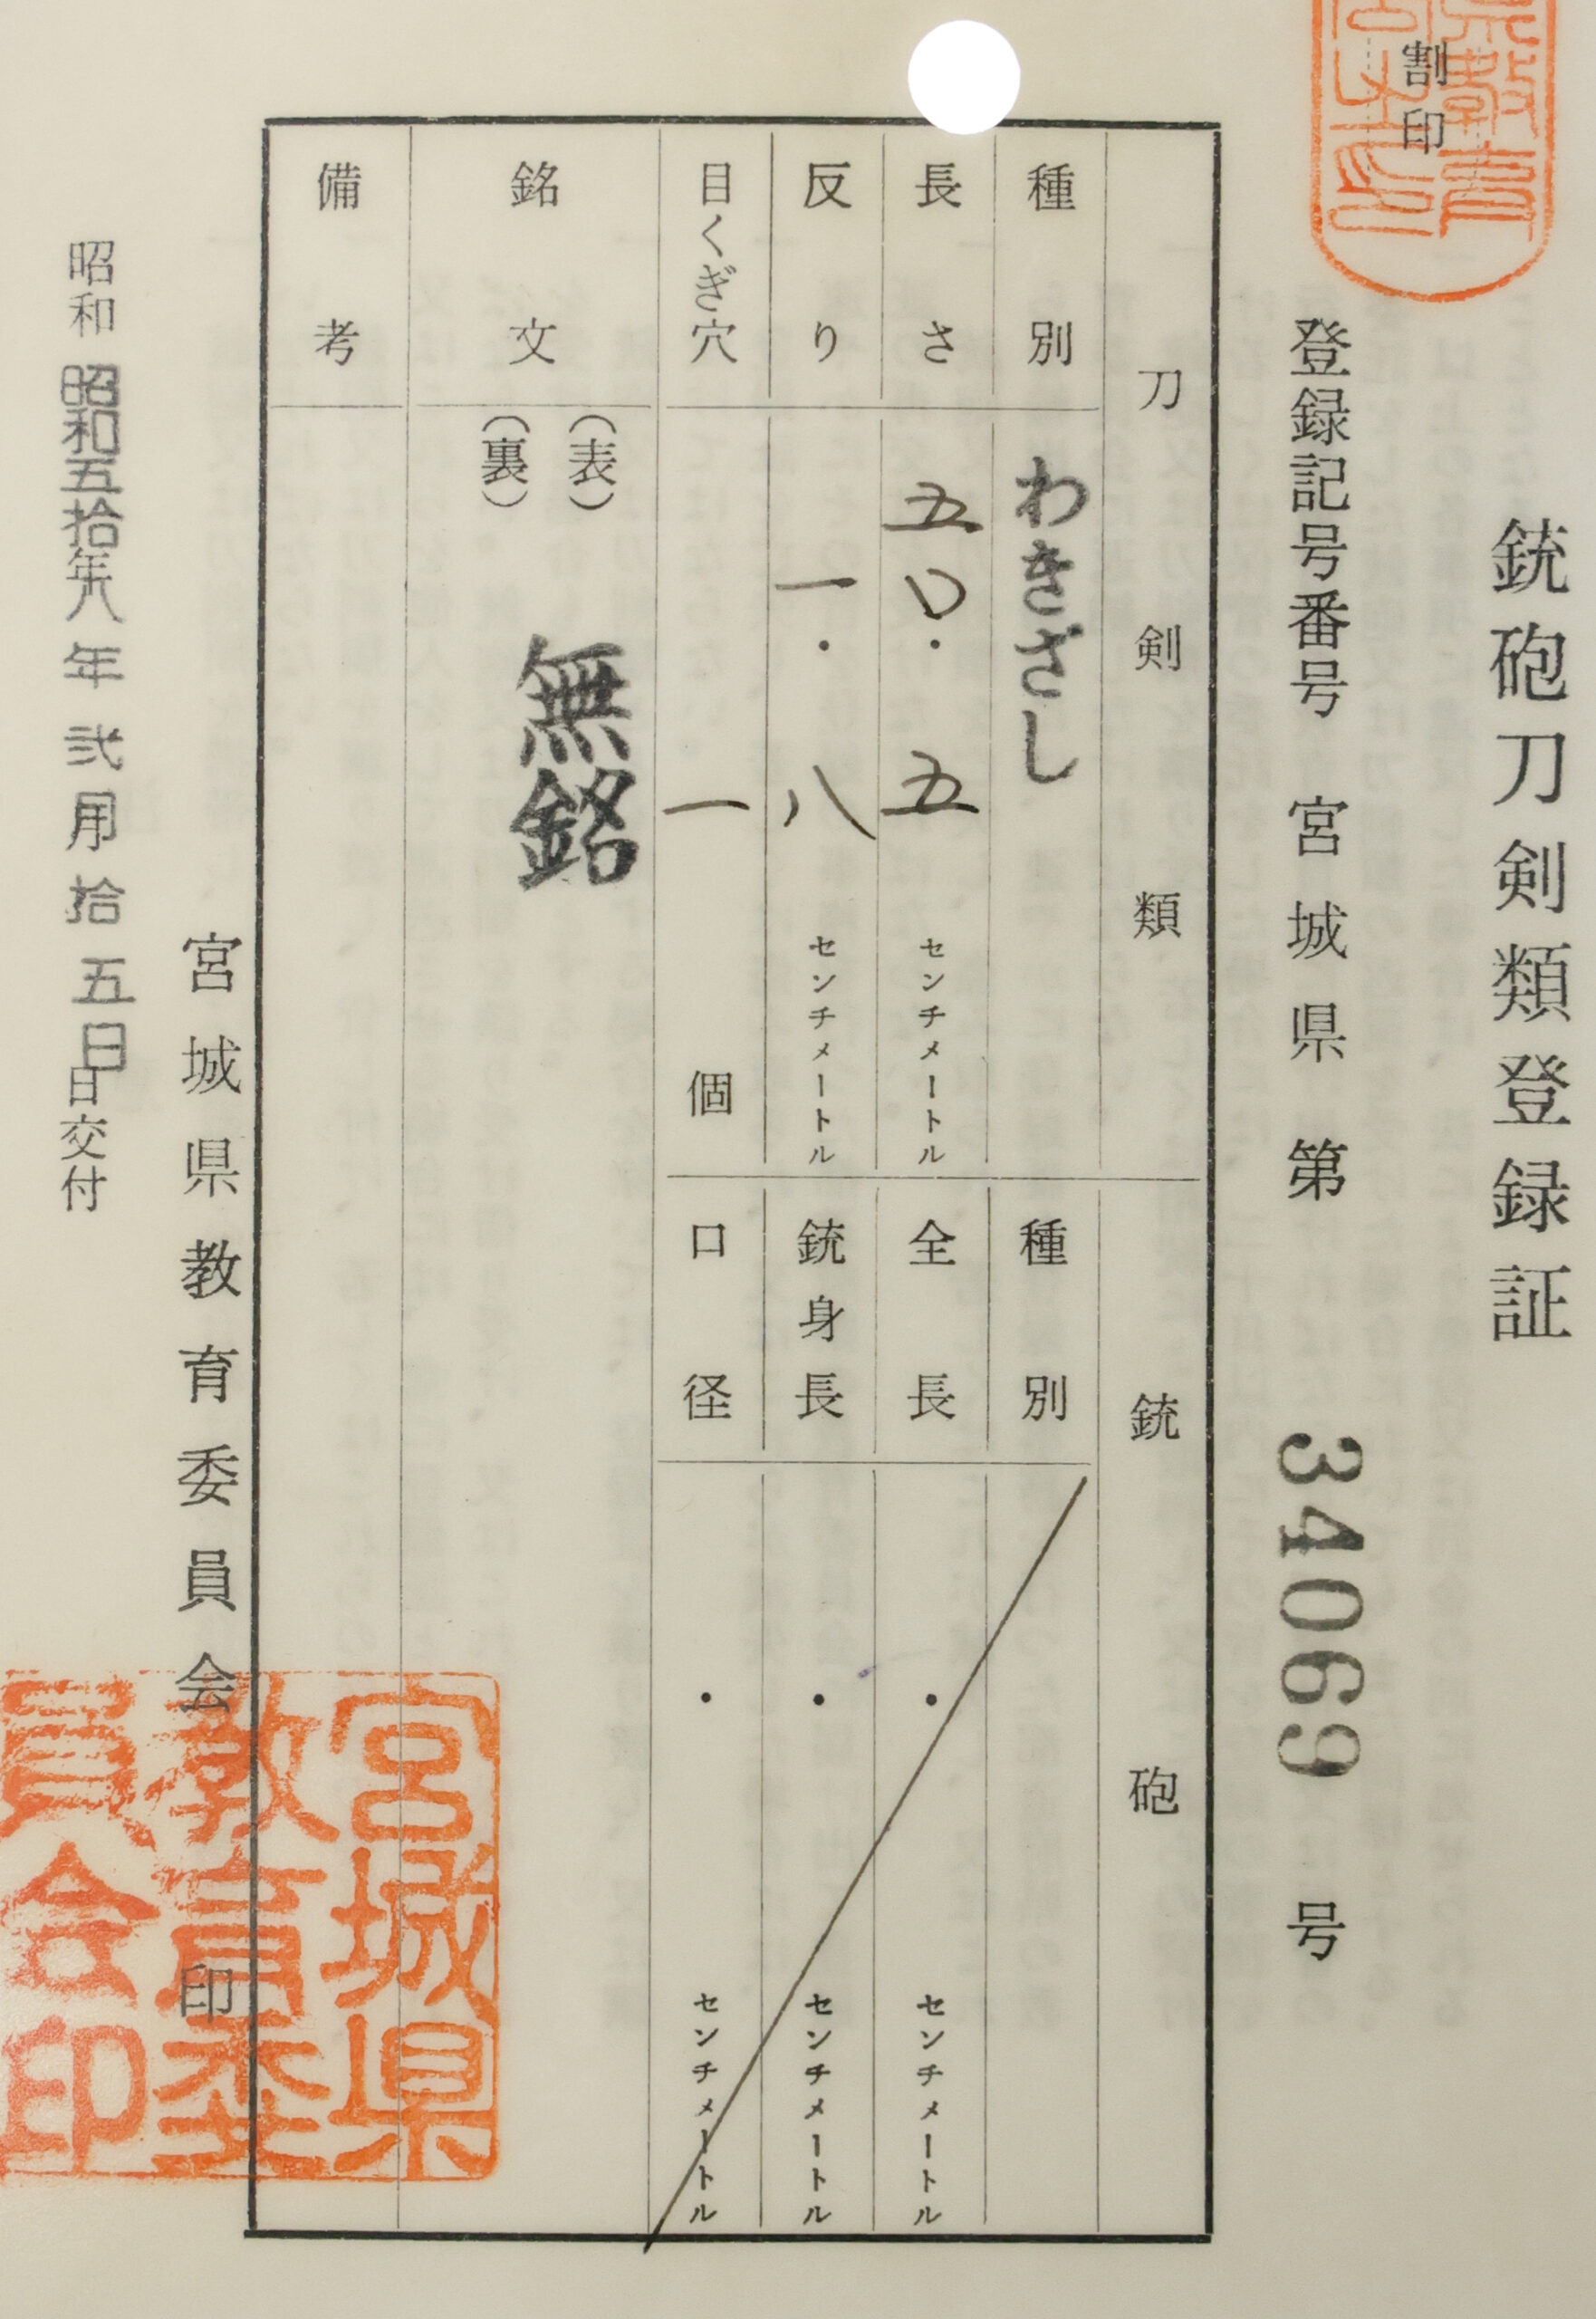 銃砲刀剣類登録証
割印
登録記号番号 宮城県 第 34069 号
刀剣類
種別 わきざし
長さ 五〇・五 センチメートル
反り 一・八 センチメートル
目くぎ穴 一 個
銃砲
種別
全長 ・ センチメートル
銃身長 ・ センチメートル
口径 ・ センチメートル
銘文 (表) 無銘
(裏)
備考
宮城県教育委員会 印
宮城県
教育委
員会印
昭和 昭和五拾八年 弐月 拾五日 日交付